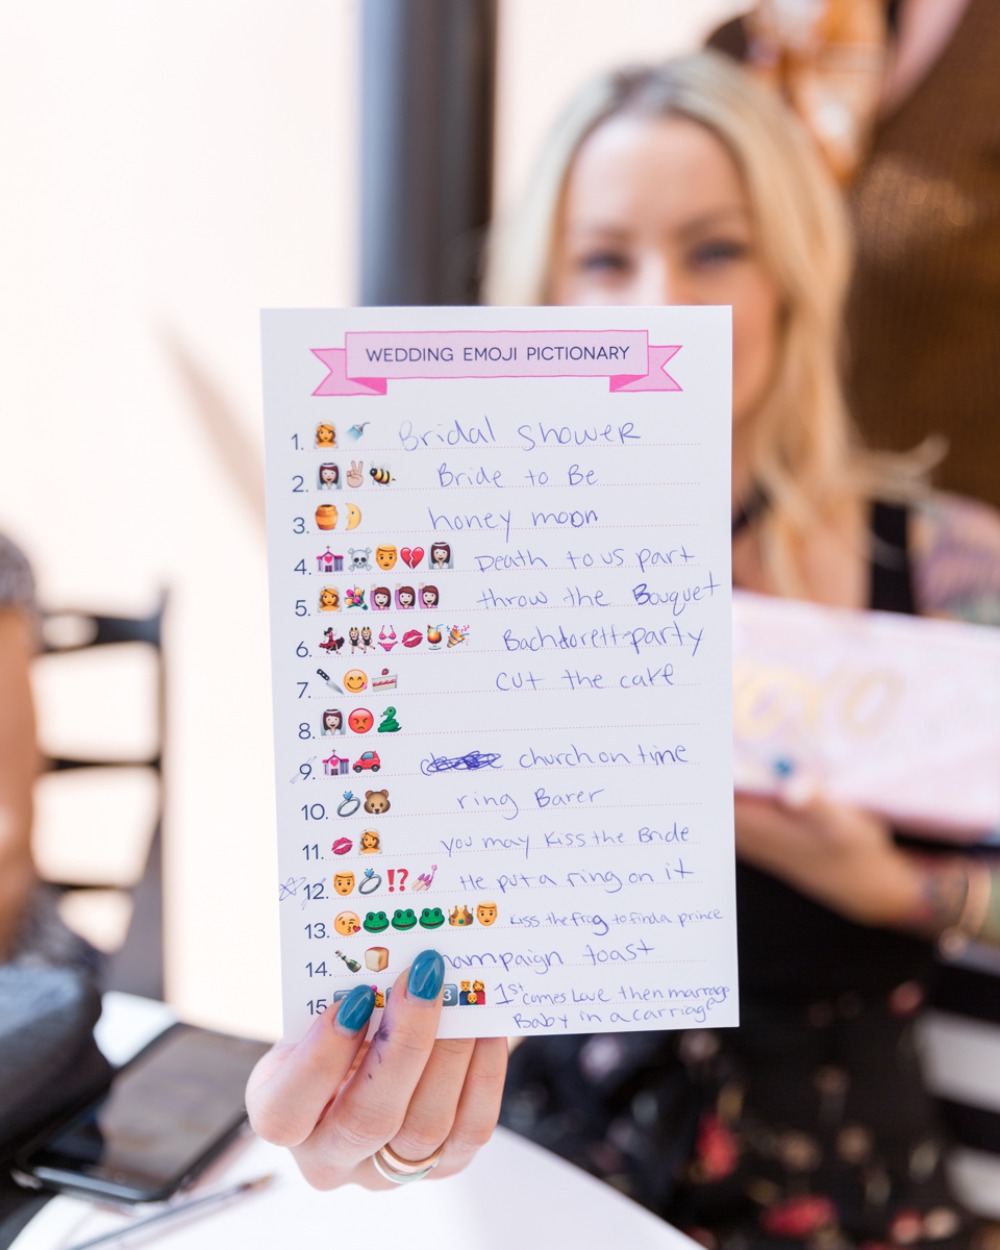 WEDDING EMOJI PICTIONARY
1. Bridal Shower
2. Bride to Be
3. honey moon
4. Death to us part
5. throw the Bouquet
6. Bachdorett party
7. cut the cake
8.
9. church on time
10. ring Barer
11. you may kiss the Bride
12. He put a ring on it
13. kiss the frog to find a prince
14. hampaign toast
15 3 1st comes Love then marrage
Baby in a carriage
xoxo